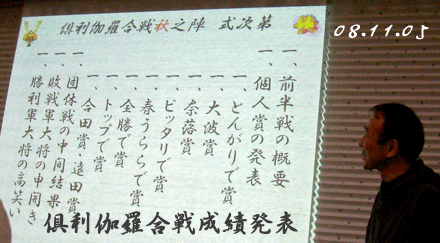 倶利伽羅合戦秋之陣 式次第
08.11.05
一、前半戦の概要
一、個人賞の発表
一、とんがりで賞
一、大波賞
一、奈落賞
一、ピッタリで賞
一、春うららで賞
一、全勝で賞
一、トップで賞
一、合田賞・遠田賞
一、団体戦の中間結果
一、敗戦軍大将の申開き
一、勝利軍大将の高笑い
倶利伽羅合戦成績発表